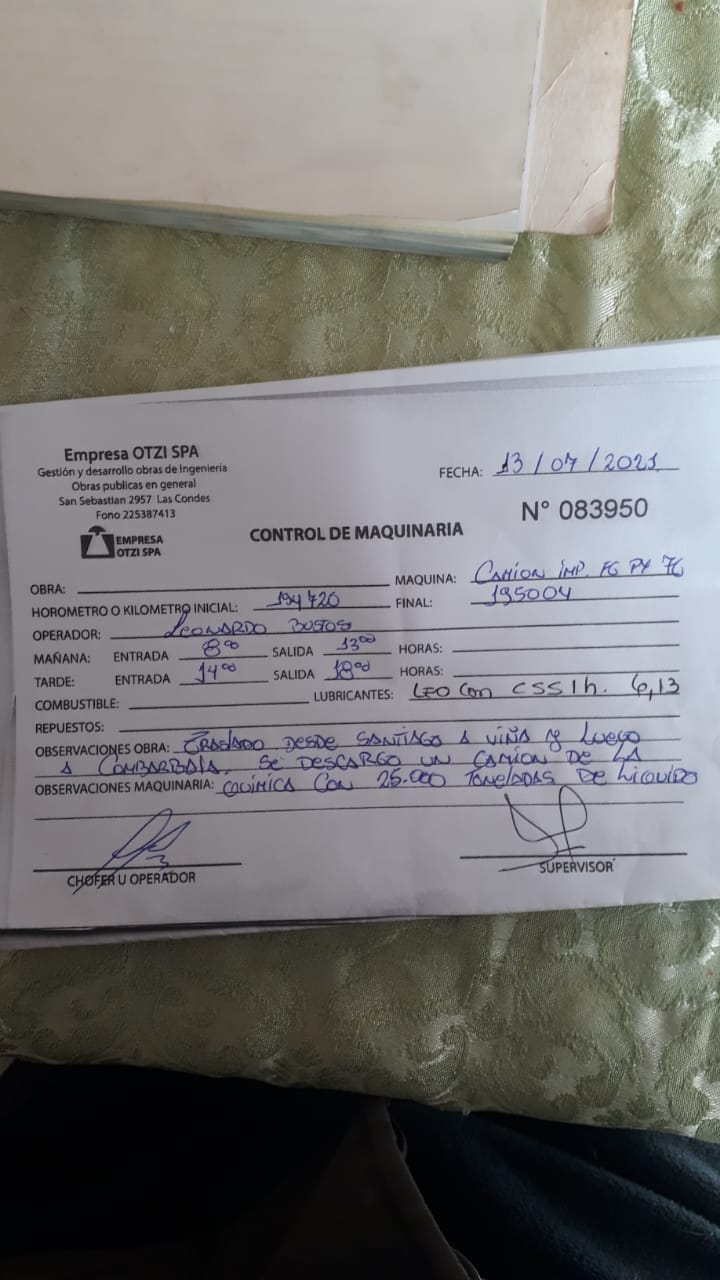 Empresa OTZI SPA
Gestión y desarrollo obras de Ingenieria
Obras publicas en general
San Sebastian 2957 Las Condes
Fono 225387413
EMPRESA
OTZI SPA
FECHA: 13/07/2021
N° 083950
CONTROL DE MAQUINARIA
OBRA: MAQUINA: CAMION IMP. FG PY 76
HOROMETRO O KILOMETRO INICIAL: 194720 FINAL: 195004
OPERADOR: LEONARDO BUSTOS
MAÑANA: ENTRADA 800 SALIDA 1300 HORAS:
TARDE: ENTRADA 1400 SALIDA 1800 HORAS:
COMBUSTIBLE: LUBRICANTES: LEO CON CSS1h. 6,13
REPUESTOS:
OBSERVACIONES OBRA: TRASLADO DESDE SANTIAGO A VIÑA Y LUEGO
A COMBARBALA, SE DESCARGO UN CAMION DE LA
OBSERVACIONES MAQUINARIA: QUIMICA CON 25.000 TONELADAS DE LIQUIDO
CHOFER U OPERADOR SUPERVISOR